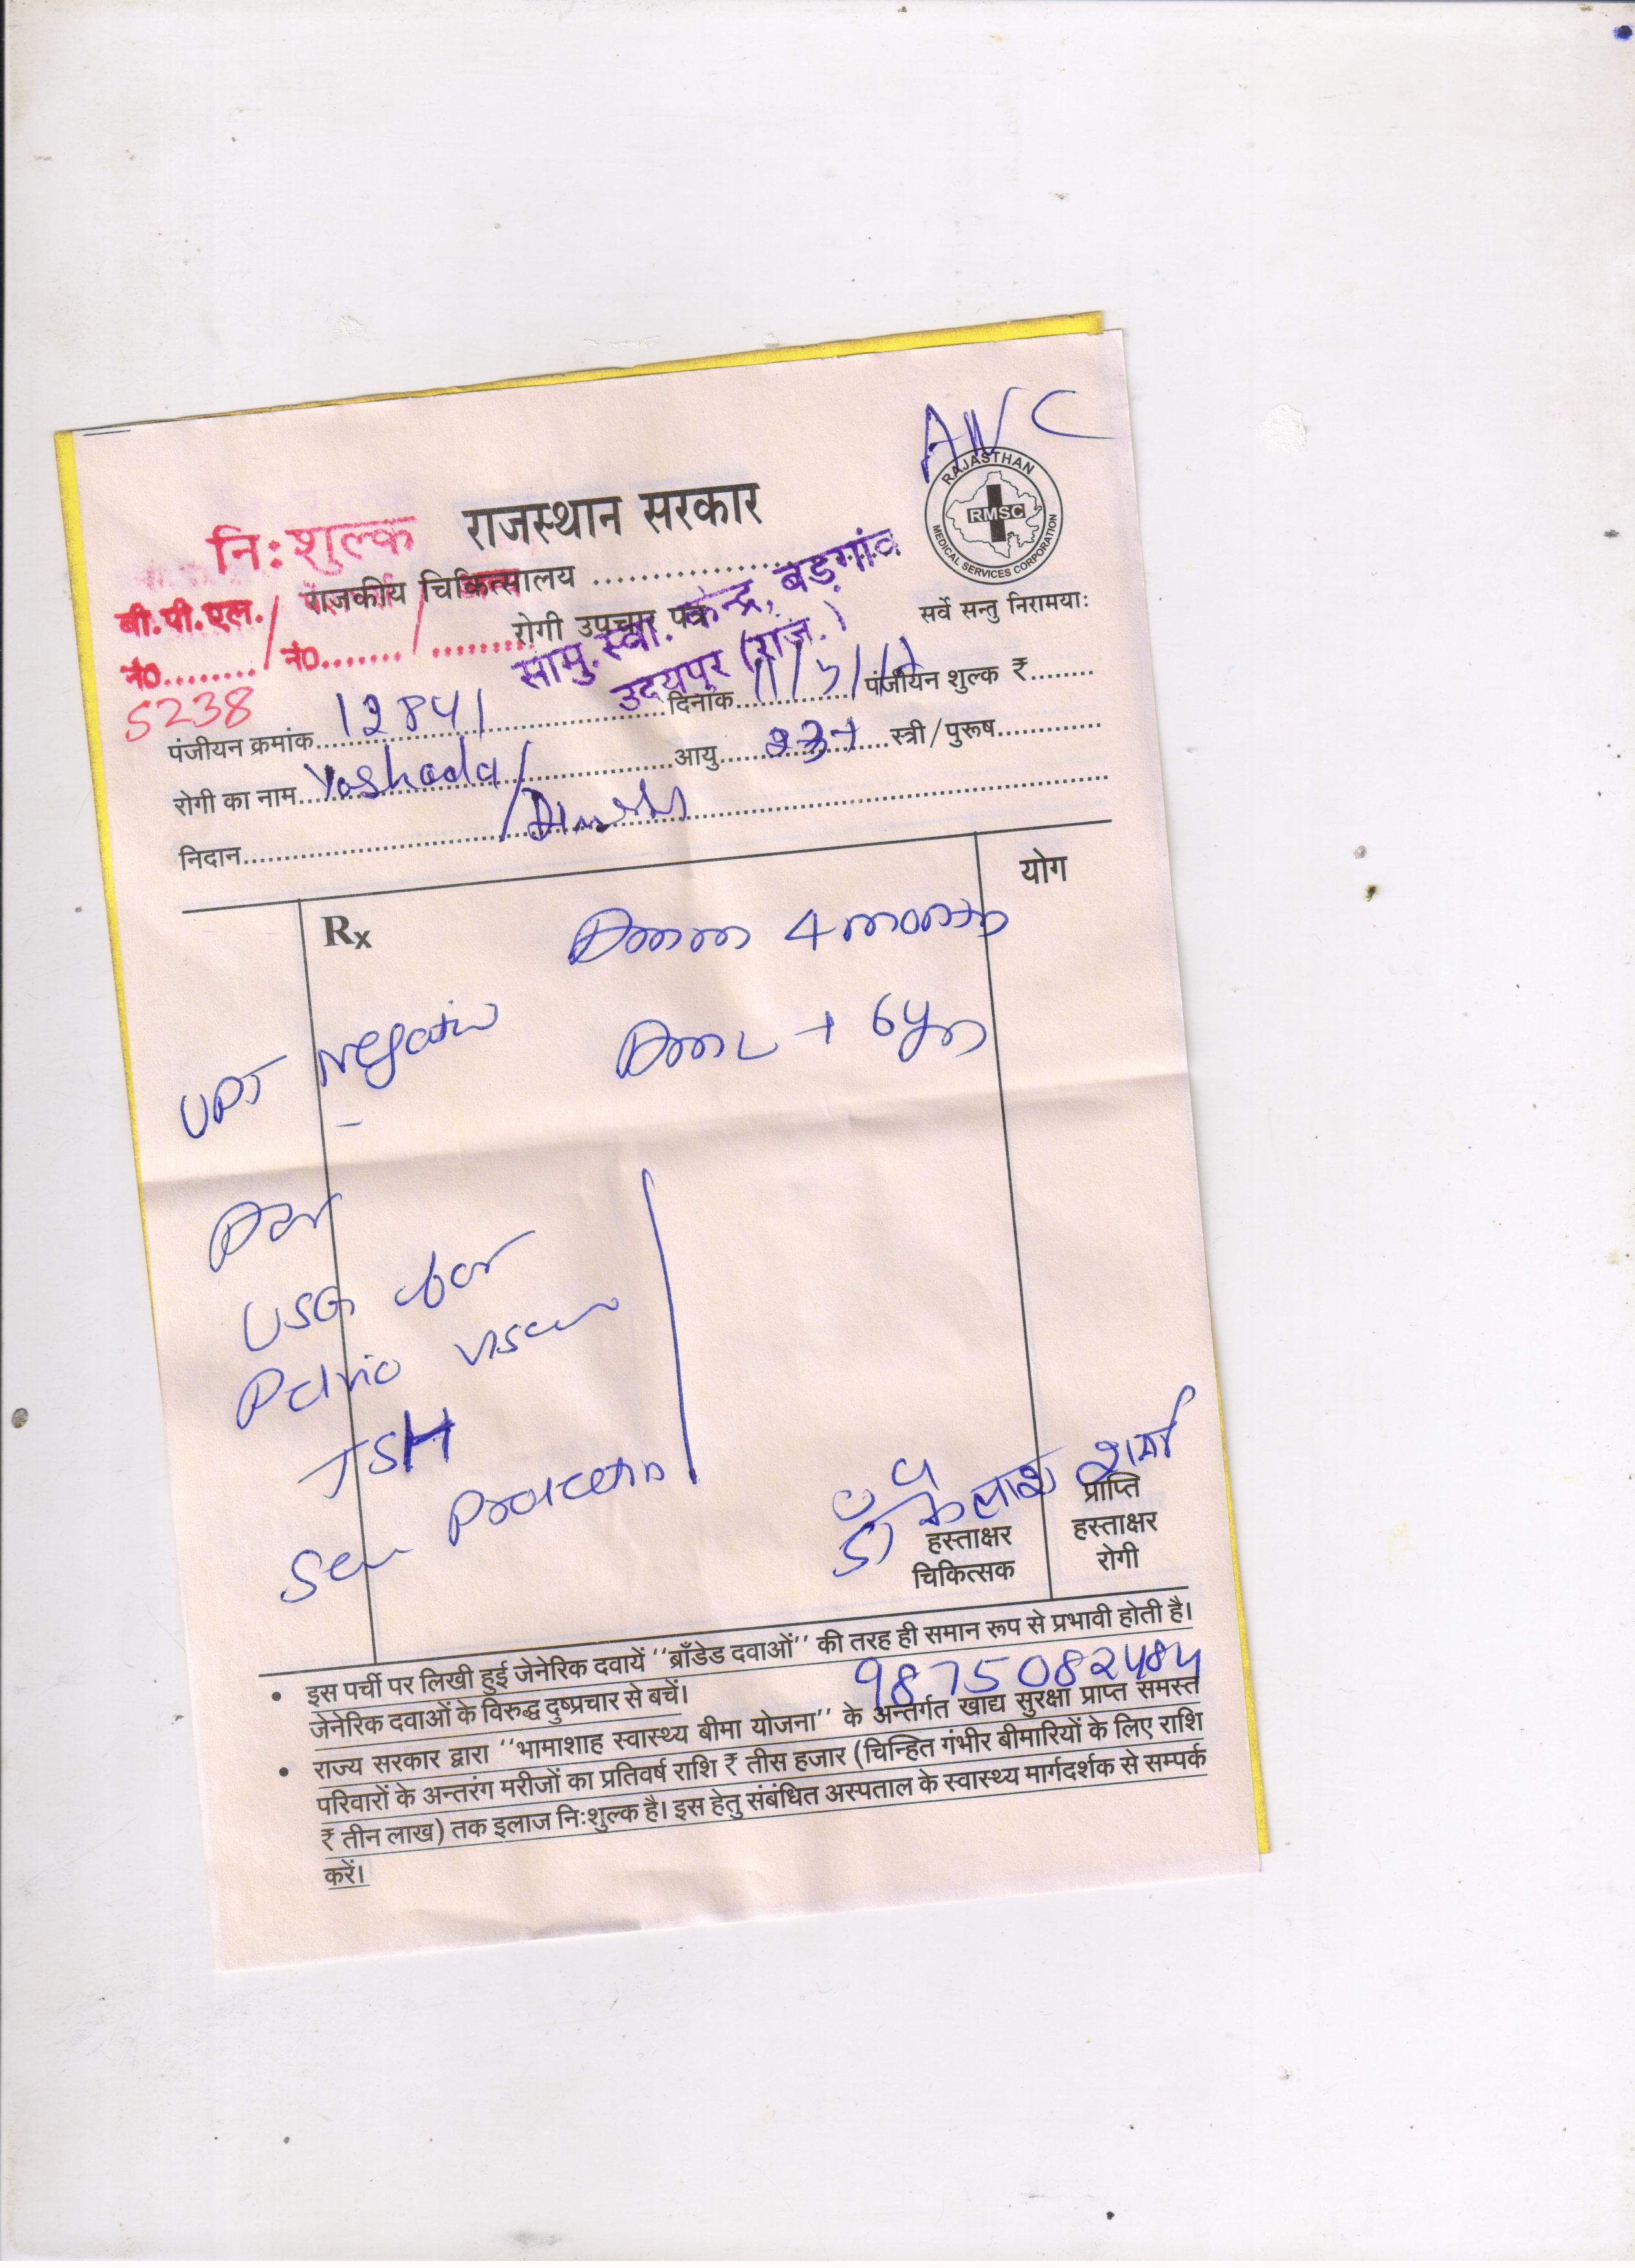 ANC
RAJASTHAN
RMSC
MEDICAL SERVICES CORPORATION
नि:शुल्क राजस्थान सरकार
राजकीय चिकित्सालय
सामु.स्वा. केन्द्र, बड़गांव
उदयपुर (राज.)
रोगी उपचार पत्र
सर्वे सन्तु निरामया:
बी.पी.एल./
नं0......../ नं0......./
5238
पंजीयन क्रमांक 12841 दिनांक पंजीयन शुल्क ₹
रोगी का नाम Yashoda/ आयु स्त्री/पुरूष
निदान
Rx योग
4 month
UPT Negative
6 yrs
USG for
Pelvic viscera
TSH
Serum Prolactin
डॉ कैलाश शर्मा
हस्ताक्षर
चिकित्सक
प्राप्ति
हस्ताक्षर
रोगी
• इस पर्ची पर लिखी हुई जेनेरिक दवायें ''ब्राँडेड दवाओं'' की तरह ही समान रूप से प्रभावी होती है।
जेनेरिक दवाओं के विरुद्ध दुष्प्रचार से बचें।
9875082484
• राज्य सरकार द्वारा ''भामाशाह स्वास्थ्य बीमा योजना'' के अन्तर्गत खाद्य सुरक्षा प्राप्त समस्त
परिवारों के अन्तरंग मरीजों का प्रतिवर्ष राशि ₹ तीस हजार (चिन्हित गंभीर बीमारियों के लिए राशि
₹ तीन लाख) तक इलाज नि:शुल्क है। इस हेतु संबंधित अस्पताल के स्वास्थ्य मार्गदर्शक से सम्पर्क
करें।